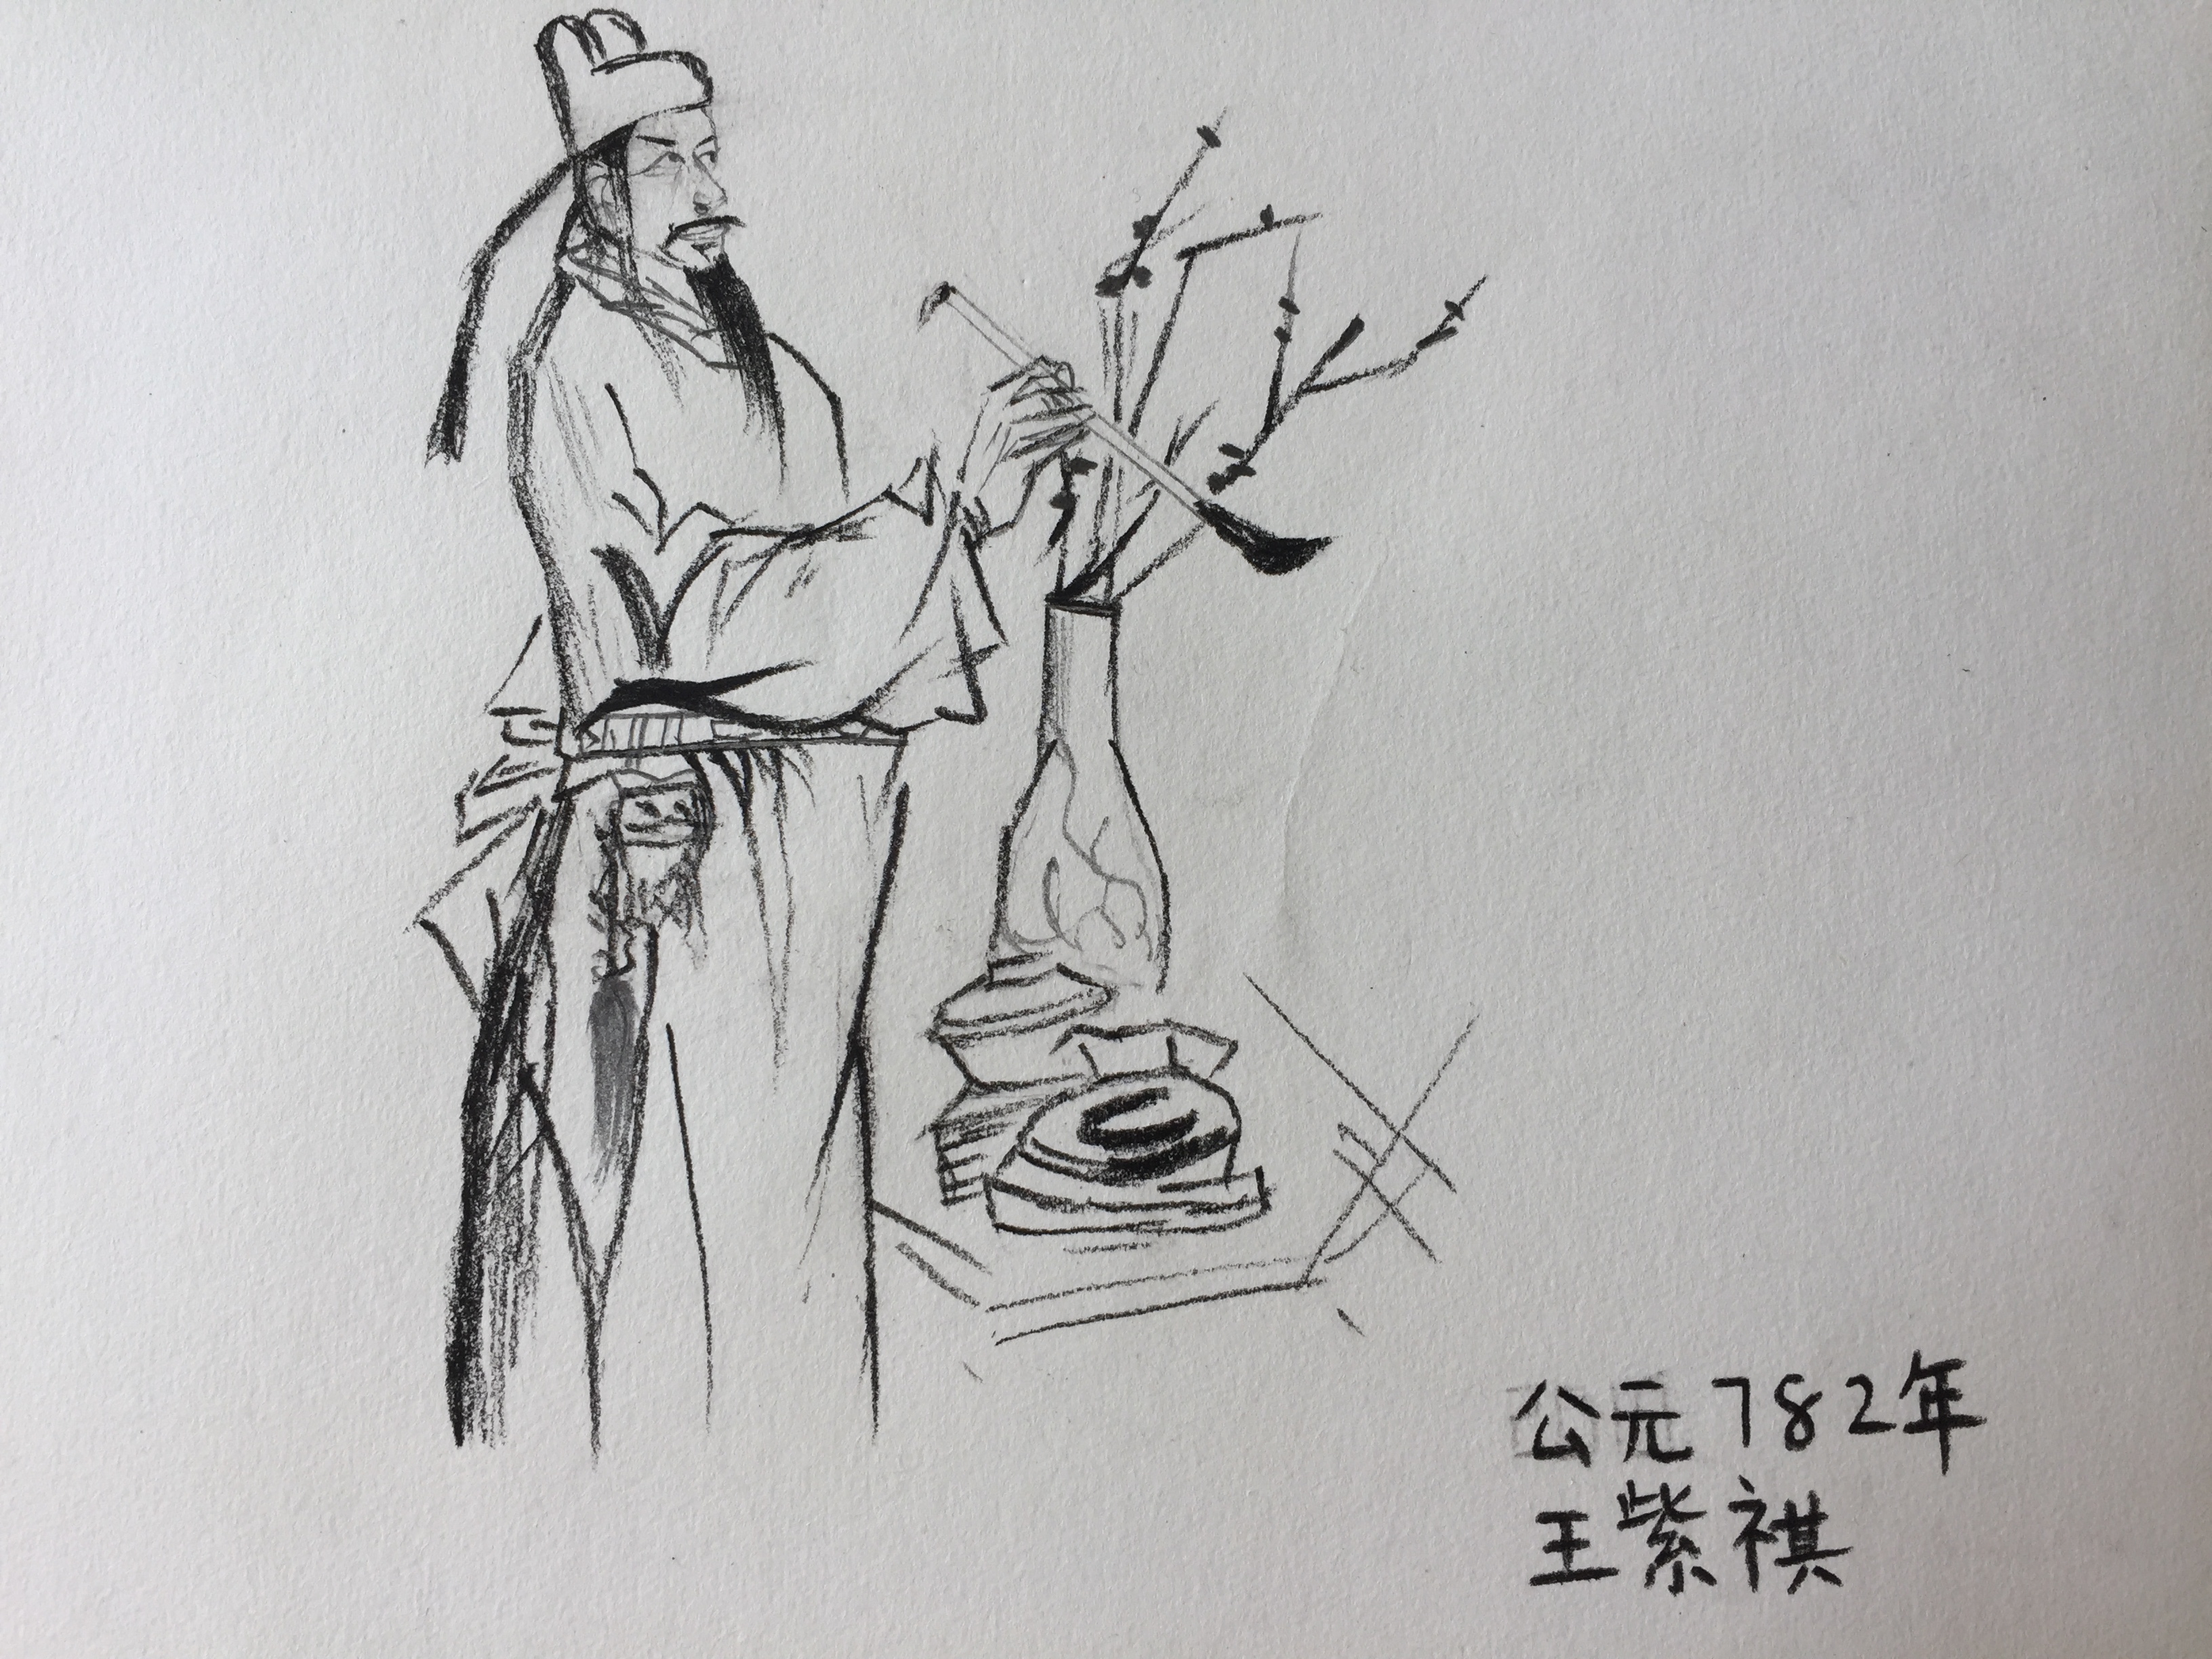 公元782年
王紫祺